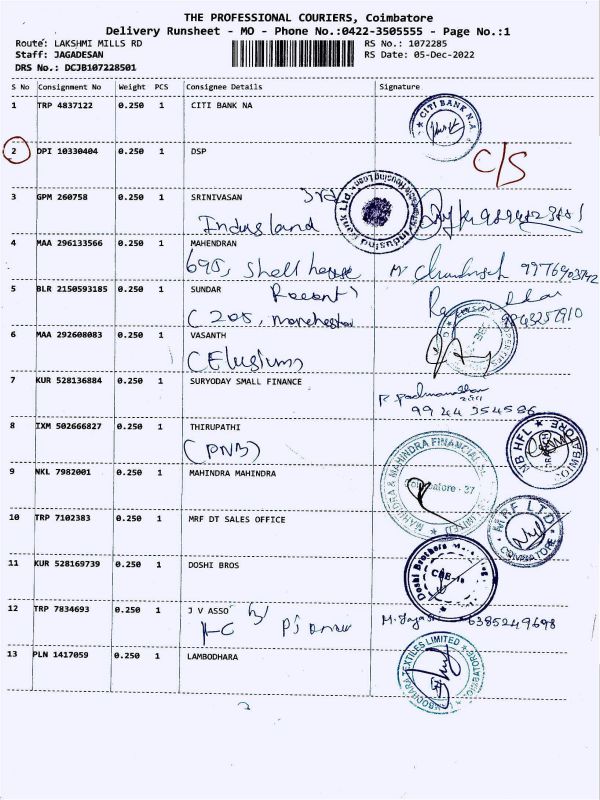 THE PROFESSIONAL COURIERS, Coimbatore
Delivery Runsheet - MO - Phone No.:0422-3505555 - Page No.:1
Route: LAKSHMI MILLS RD RS No.: 1072285
Staff: JAGADESAN RS Date: 05-Dec-2022
DRS No.: DCJB107228501
S No Consignment No Weight PCS Consignee Details Signature
1 TRP 4837122 0.250 1 CITI BANK NA CITI BANK N.A.
2 DPI 10330404 0.250 1 DSP C/S
3 GPM 260758 0.250 1 SRINIVASAN 3rd
Indusland
4 MAA 296133566 0.250 1 MAHENDRAN
690, Shell house 9976903742
5 BLR 2150593185 0.250 1 SUNDAR
C 205, Manchester 9843257910
6 MAA 292608083 0.250 1 VASANTH
(Elusiums
7 KUR 528136884 0.250 1 SURYODAY SMALL FINANCE
9944354586
8 IXM 502666827 0.250 1 THIRUPATHI
(PNB) HFL
9 NKL 7982001 0.250 1 MAHINDRA MAHINDRA MAHINDRA & MAHINDRA FINANCIAL LIMITED
Coimbatore - 37
10 TRP 7102383 0.250 1 MRF DT SALES OFFICE MRF LTD COIMBATORE
11 KUR 528169739 0.250 1 DOSHI BROS Doshi Brothers
CBE-18
12 TRP 7834693 0.250 1 J V ASSO
6385249698
13 PLN 1417059 0.250 1 LAMBODHARA TEXTILES LIMITED